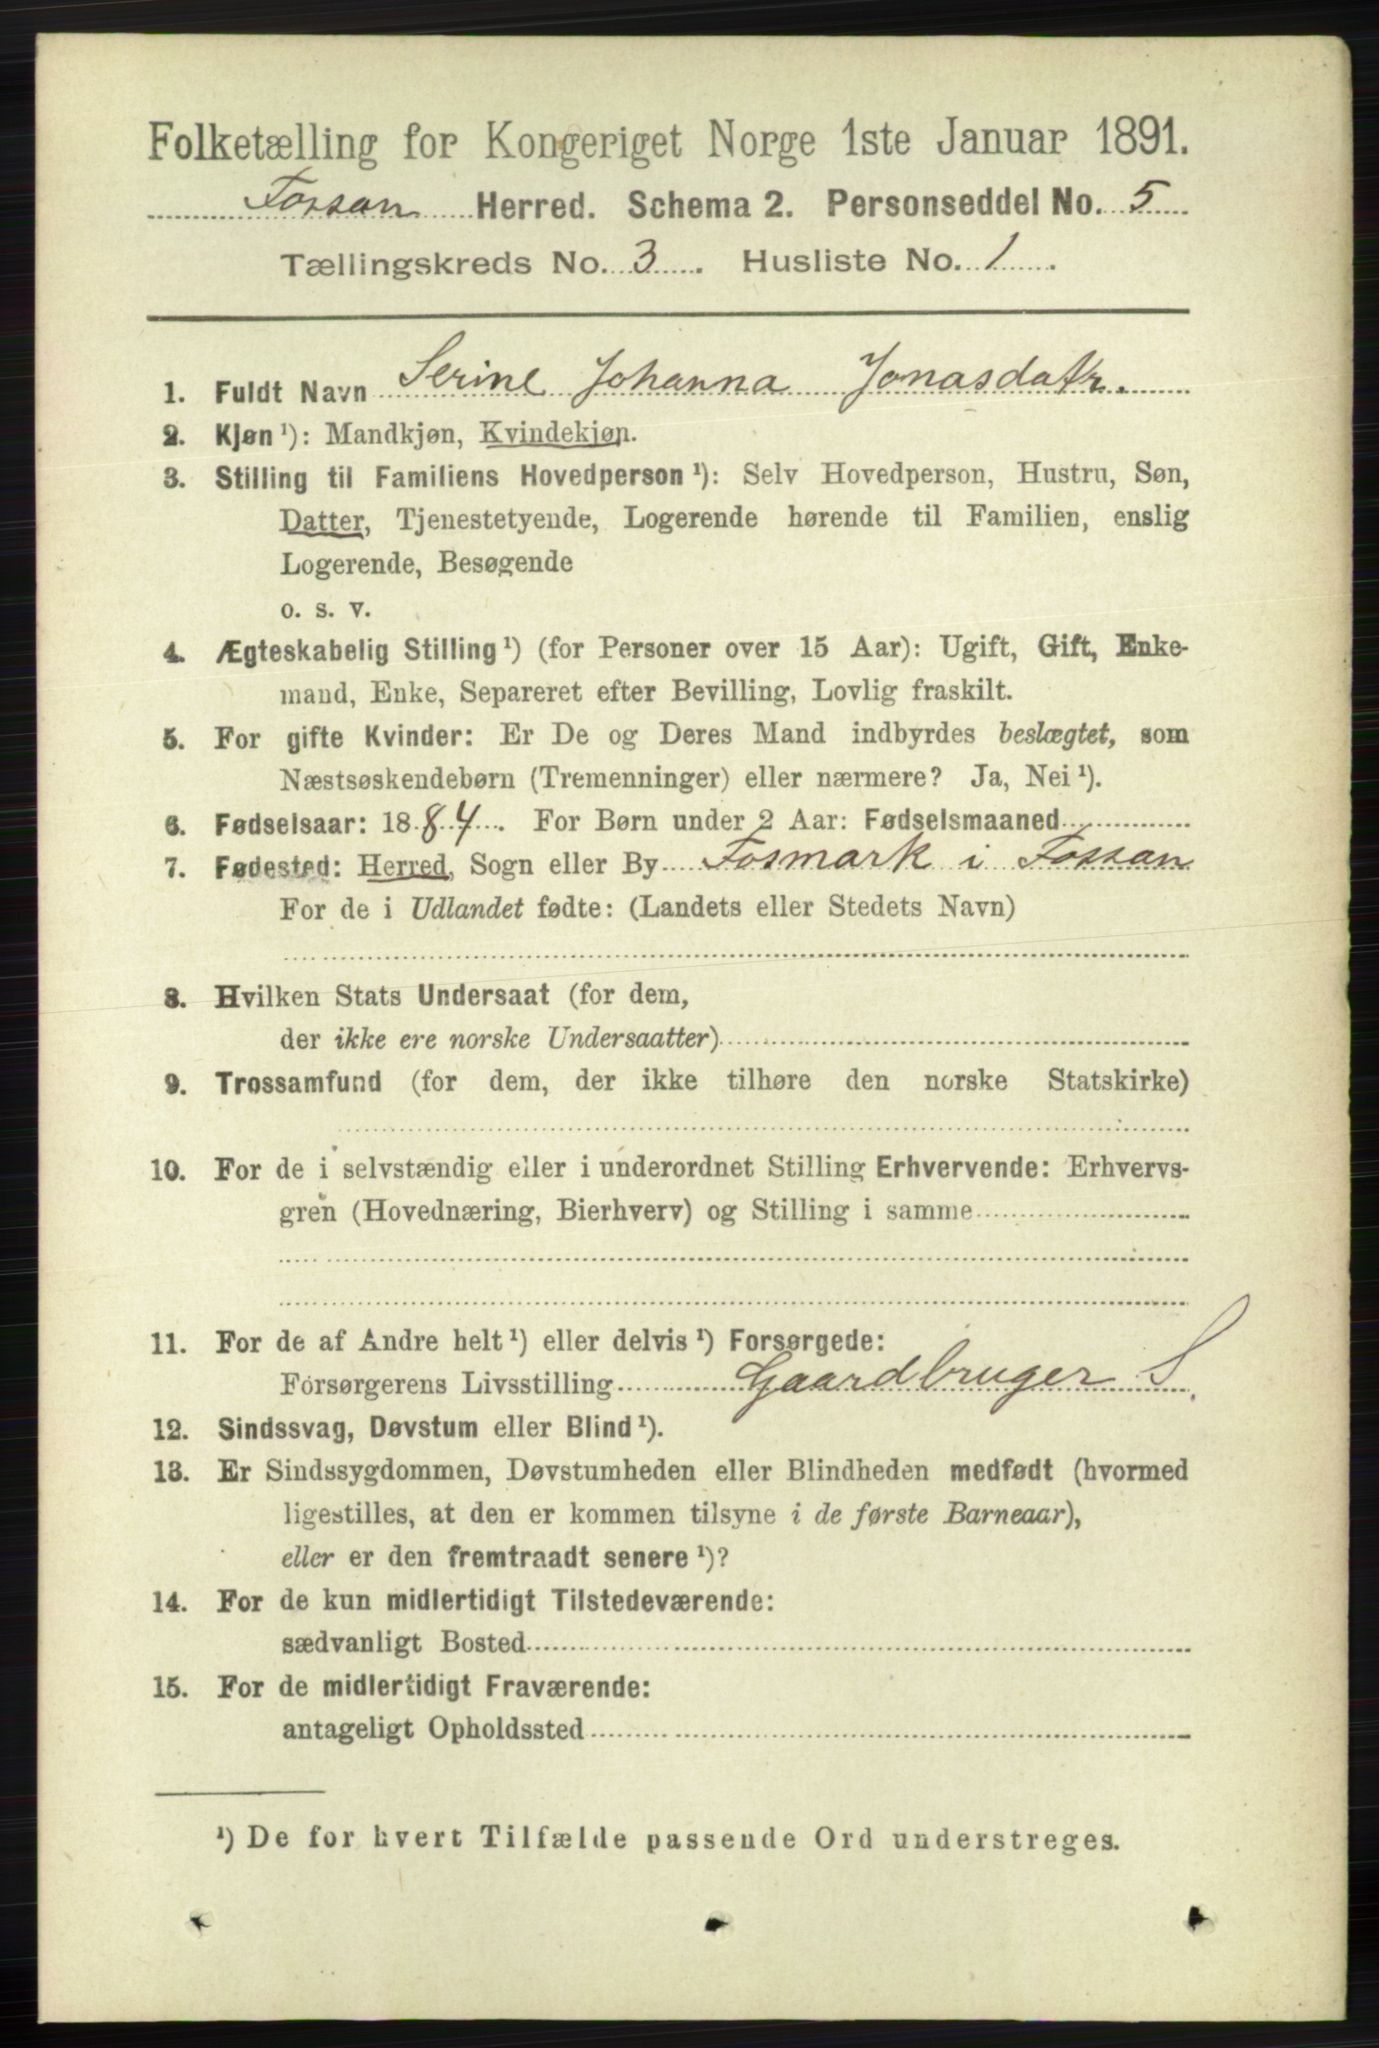 Folketælling for Kongeriget Norge 1ste Januar 1891.
Fossan Herred. Schema 2. Personseddel No. 5
Tællingskreds No. 3. Husliste No. 1.
1. Fuldt Navn Serine Johanna Jonasdatr.
2. Kjøn ¹): Mandkjøn, Kvindekjøn.
3. Stilling til Familiens Hovedperson ¹): Selv Hovedperson, Hustru, Søn,
Datter, Tjenestetyende, Logerende hørende til Familien, enslig
Logerende, Besøgende
o. s. v.
4. Ægteskabelig Stilling ¹) (for Personer over 15 Aar): Ugift, Gift, Enke-
mand, Enke, Separeret efter Bevilling, Lovlig fraskilt.
5. For gifte Kvinder: Er De og Deres Mand indbyrdes beslægtet, som
Næstsøskendebørn (Tremenninger) eller nærmere? Ja, Nei ¹).
6. Fødselsaar: 1884. For Børn under 2 Aar: Fødselsmaaned
7. Fødested: Herred, Sogn eller By Fosmark i Fossan
For de i Udlandet fødte: (Landets eller Stedets Navn)
8. Hvilken Stats Undersaat (for dem,
der ikke ere norske Undersaatter)
9. Trossamfund (for dem, der ikke tilhøre den norske Statskirke)
10. For de i selvstændig eller i underordnet Stilling Erhvervende: Erhvervs-
gren (Hovednæring, Bierhverv) og Stilling i samme
11. For de af Andre helt ¹) eller delvis ¹) Forsørgede:
Forsørgerens Livsstilling Gaardbruger S.
12. Sindssvag, Døvstum eller Blind ¹).
13. Er Sindssygdommen, Døvstumheden eller Blindheden medfødt (hvormed
ligestilles, at den er kommen tilsyne i de første Barneaar),
eller er den fremtraadt senere ¹)?
14. For de kun midlertidigt Tilstedeværende:
sædvanligt Bosted
15. For de midlertidigt Fraværende:
antageligt Opholdssted
¹) De for hvert Tilfælde passende Ord understreges.